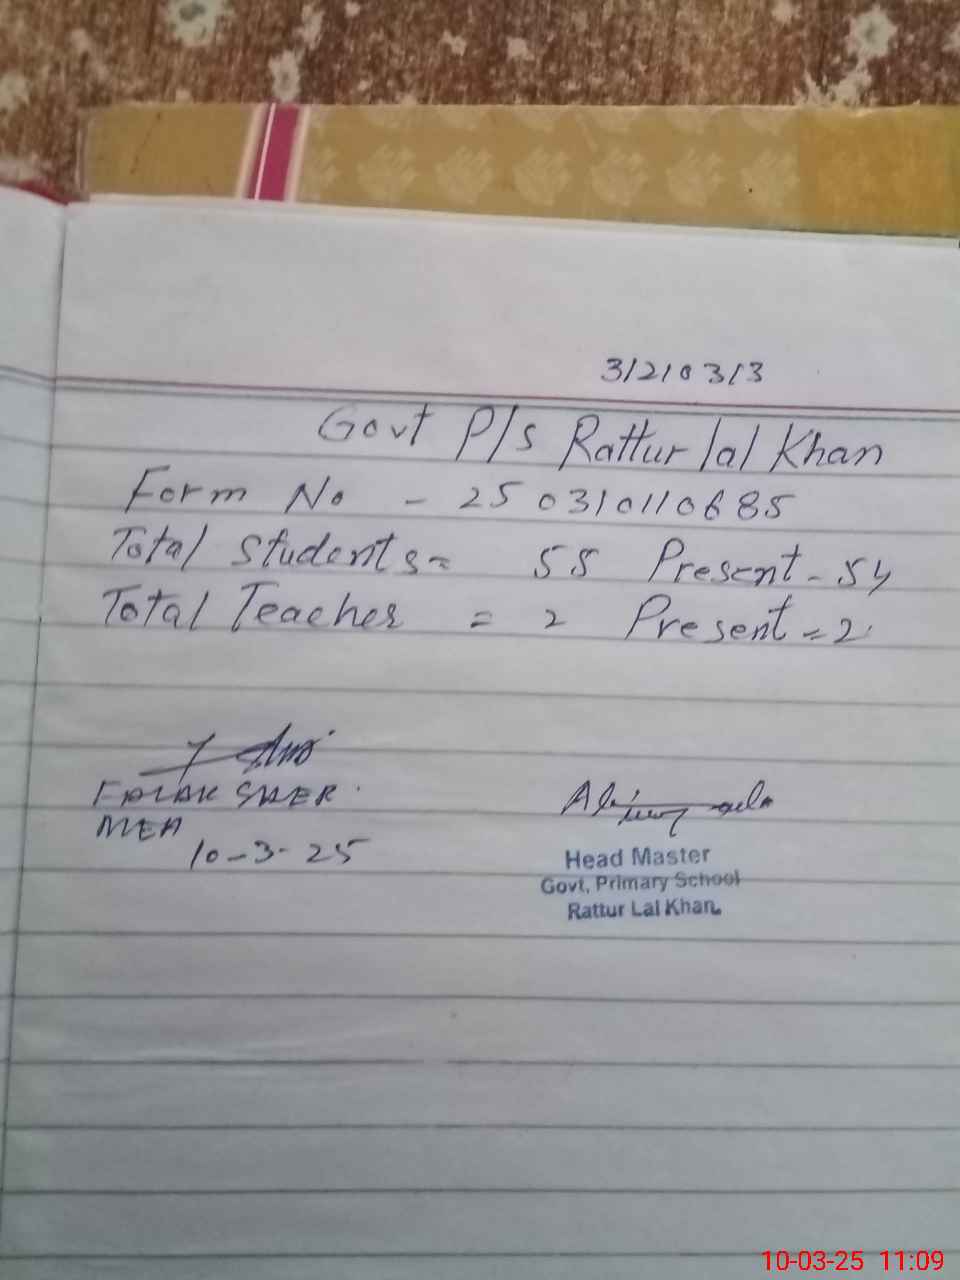 31210313
Govt P/s Rattur lal Khan
Form No - 250310110685
Total Students = 55 Present - 54
Total Teacher = 2 Present = 2
FALAK SHER
MEA
10-3-25
Head Master
Govt, Primary School
Rattur Lal Khan
10-03-25 11:09